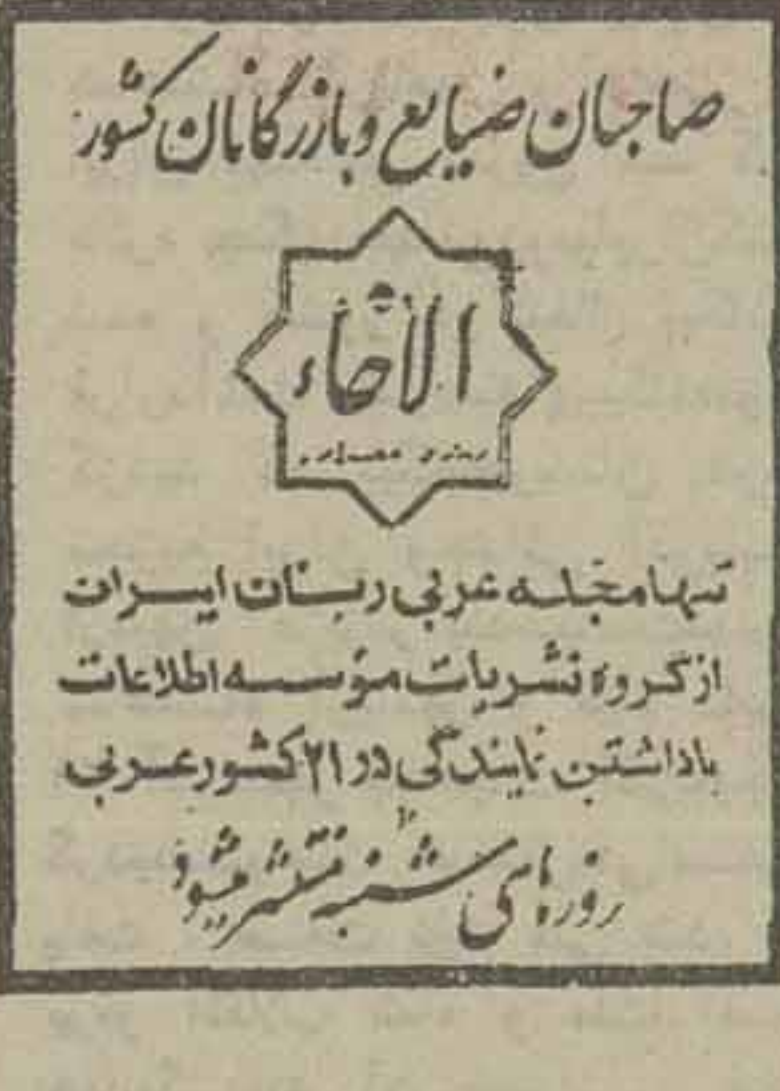 صاحبان صنایع و بازرگانان کشور
الاخاء
تنها مجله عربی زبان ایران
از گروه نشریات مؤسسه اطلاعات
با داشتن نمایندگی در ۲۱ کشور عربی
روزهای شنبه منتشر میشود